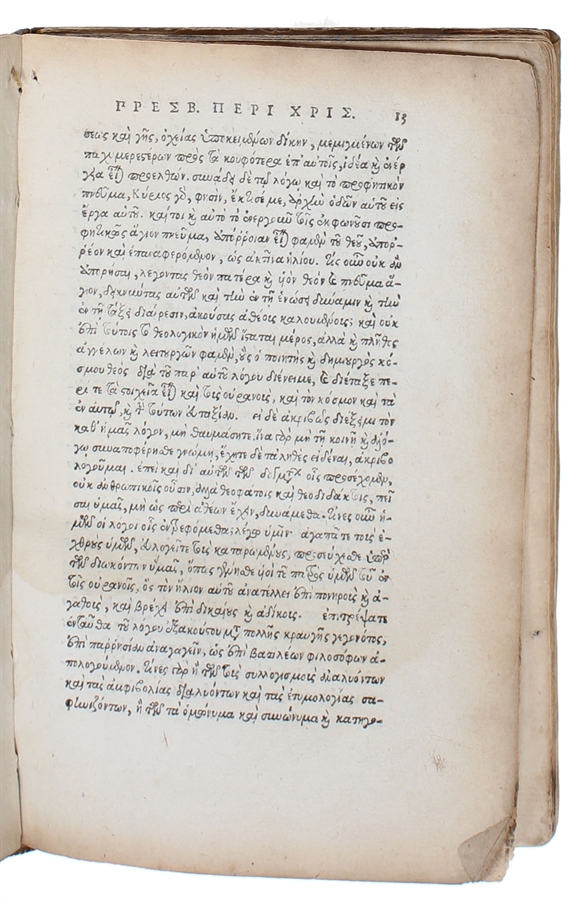 ΠΡΕΣΒ. ΠΕΡΙ ΧΡΙΣ. 13
σεως καὶ γῆς, ὀχείας ὑποκειμένων δίκην, μεμιγμένων τῶν
παχυμερεστέρων πρὸς τὰ κουφότερα ἐπ' αὐτοῖς, ἰδέα καὶ ἐνέρ-
γεια εἶναι προελθών. συνάδει δὲ τῷ λόγῳ καὶ τὸ προφητικὸν
πνεῦμα, Κύριος γὰρ, φησὶν, ἔκτισέ με, ἀρχὴν ὁδῶν αὐτοῦ εἰς
ἔργα αὐτοῦ. καίτοι καὶ αὐτὸ τὸ ἐνεργοῦν τοῖς ἐκφωνοῦσι προ-
φητικῶς ἅγιον πνεῦμα, ἀπόρροιαν εἶναι φαμὲν τοῦ θεοῦ, ἀπορ-
ρέον καὶ ἐπαναφερόμενον, ὡς ἀκτῖνα ἡλίου. τίς οὖν οὐκ ἂν
ἀπορήσαι, λέγοντας θεὸν πατέρα καὶ υἱὸν θεὸν καὶ πνεῦμα ἅ-
γιον, δεικνύντας αὐτῶν καὶ τὴν ἐν τῇ ἑνώσει δύναμιν καὶ τὴν
ἐν τῇ τάξει διαίρεσιν, ἀκούσας ἀθέους καλουμένους; καὶ οὐκ
ἐπὶ τούτοις τὸ θεολογικὸν ἡμῶν ἵσταται μέρος, ἀλλὰ καὶ πλῆθος
ἀγγέλων καὶ λειτουργῶν φαμὲν, οὓς ὁ ποιητὴς καὶ δημιουργὸς κό-
σμου θεὸς διὰ τοῦ παρ' αὐτοῦ λόγου διένειμε, καὶ διέταξε πε-
ρί τε τὰ στοιχεῖα εἶναι καὶ τοὺς οὐρανοὺς, καὶ τὸν κόσμον καὶ τὰ
ἐν αὐτῷ, καὶ τὴν τούτων εὐταξίαν. εἰ δὲ ἀκριβῶς διέξειμι τὸν
καθ' ἡμᾶς λόγον, μὴ θαυμάσητε, ἵνα γὰρ μὴ τῇ κοινῇ καὶ ἀλό-
γῳ συναποφέρησθε γνώμῃ, ἔχητε δὲ τἀληθὲς εἰδέναι, ἀκριβο
λογοῦμαι. ἐπεὶ καὶ δι' αὐτῶν τῶν δογμάτων οἷς προσέχομεν,
οὐκ ἀνθρωπικοῖς οὖσιν, ἀλλὰ θεοφάτοις καὶ θεοδιδάκτοις, πεῖ
σαι ὑμᾶς, μὴ ὡς περὶ ἀθέων ἔχειν, δυνάμεθα. τίνες οὖν ἡ-
μῶν οἱ λόγοι οἷς ἐντρεφόμεθα; λέγω ὑμῖν· ἀγαπᾶτε τοὺς ἐ-
χθροὺς ὑμῶν, εὐλογεῖτε τοὺς καταρωμένους, προσεύχεσθε ὑπὲρ
τῶν διωκόντων ὑμᾶς, ὅπως γένησθε υἱοὶ τοῦ πατρὸς ὑμῶν τοῦ ἐν
τοῖς οὐρανοῖς, ὃς τὸν ἥλιον αὐτοῦ ἀνατέλλει ἐπὶ πονηροὺς καὶ ἀ-
γαθοὺς, καὶ βρέχει ἐπὶ δικαίους καὶ ἀδίκους. ἐπιτρέψατε
ἐνταῦθα τοῦ λόγου ἐξακούστου μετὰ πολλῆς κραυγῆς γεγονότος,
ἐπὶ παρρησίαν ἀναγαγεῖν, ὡς ἐπὶ βασιλέων φιλοσόφων ἀ-
πολογούμενον. τίνες γὰρ ἢ τῶν τοὺς συλλογισμοὺς ἀναλυόντων
καὶ τὰς ἀμφιβολίας διαλυόντων καὶ τὰς ἐτυμολογίας σα-
φηνιζόντων, ἢ τῶν τὰ ὁμώνυμα καὶ συνώνυμα καὶ κατηγο-